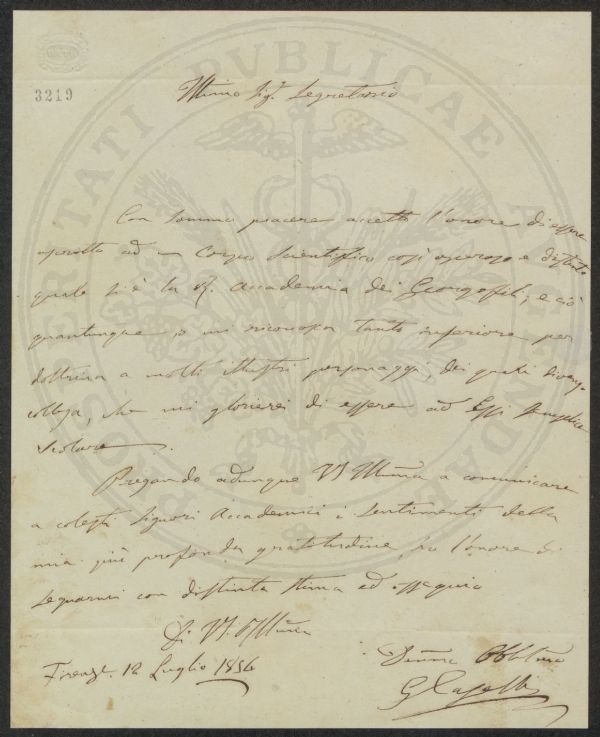 3219
PROSPERITATI PVBLICAE AVGENDAE
Illmo Sigr. Segretario
Con sommo piacere accetto l'onore di essere
ascritto ad un Corpo Scientifico così operoso e distinto
quale si è la R. Accademia dei Georgofili; e ciò
quantunque io mi riconosca tanto inferiore per
dottrina a molti illustri personaggi, dei quali divengo
collega, che mi glorierei di essere ad Essi semplice
scolare.
Pregando adunque VS Illma a comunicare
a codesti Signori Accademici i sentimenti della
mia più profonda gratitudine, ho l'onore di
segnarmi con distinta stima ed ossequio
Di VS. Illma
Firenze 12 Luglio 1856
Devmo Obblmo
G Caselli